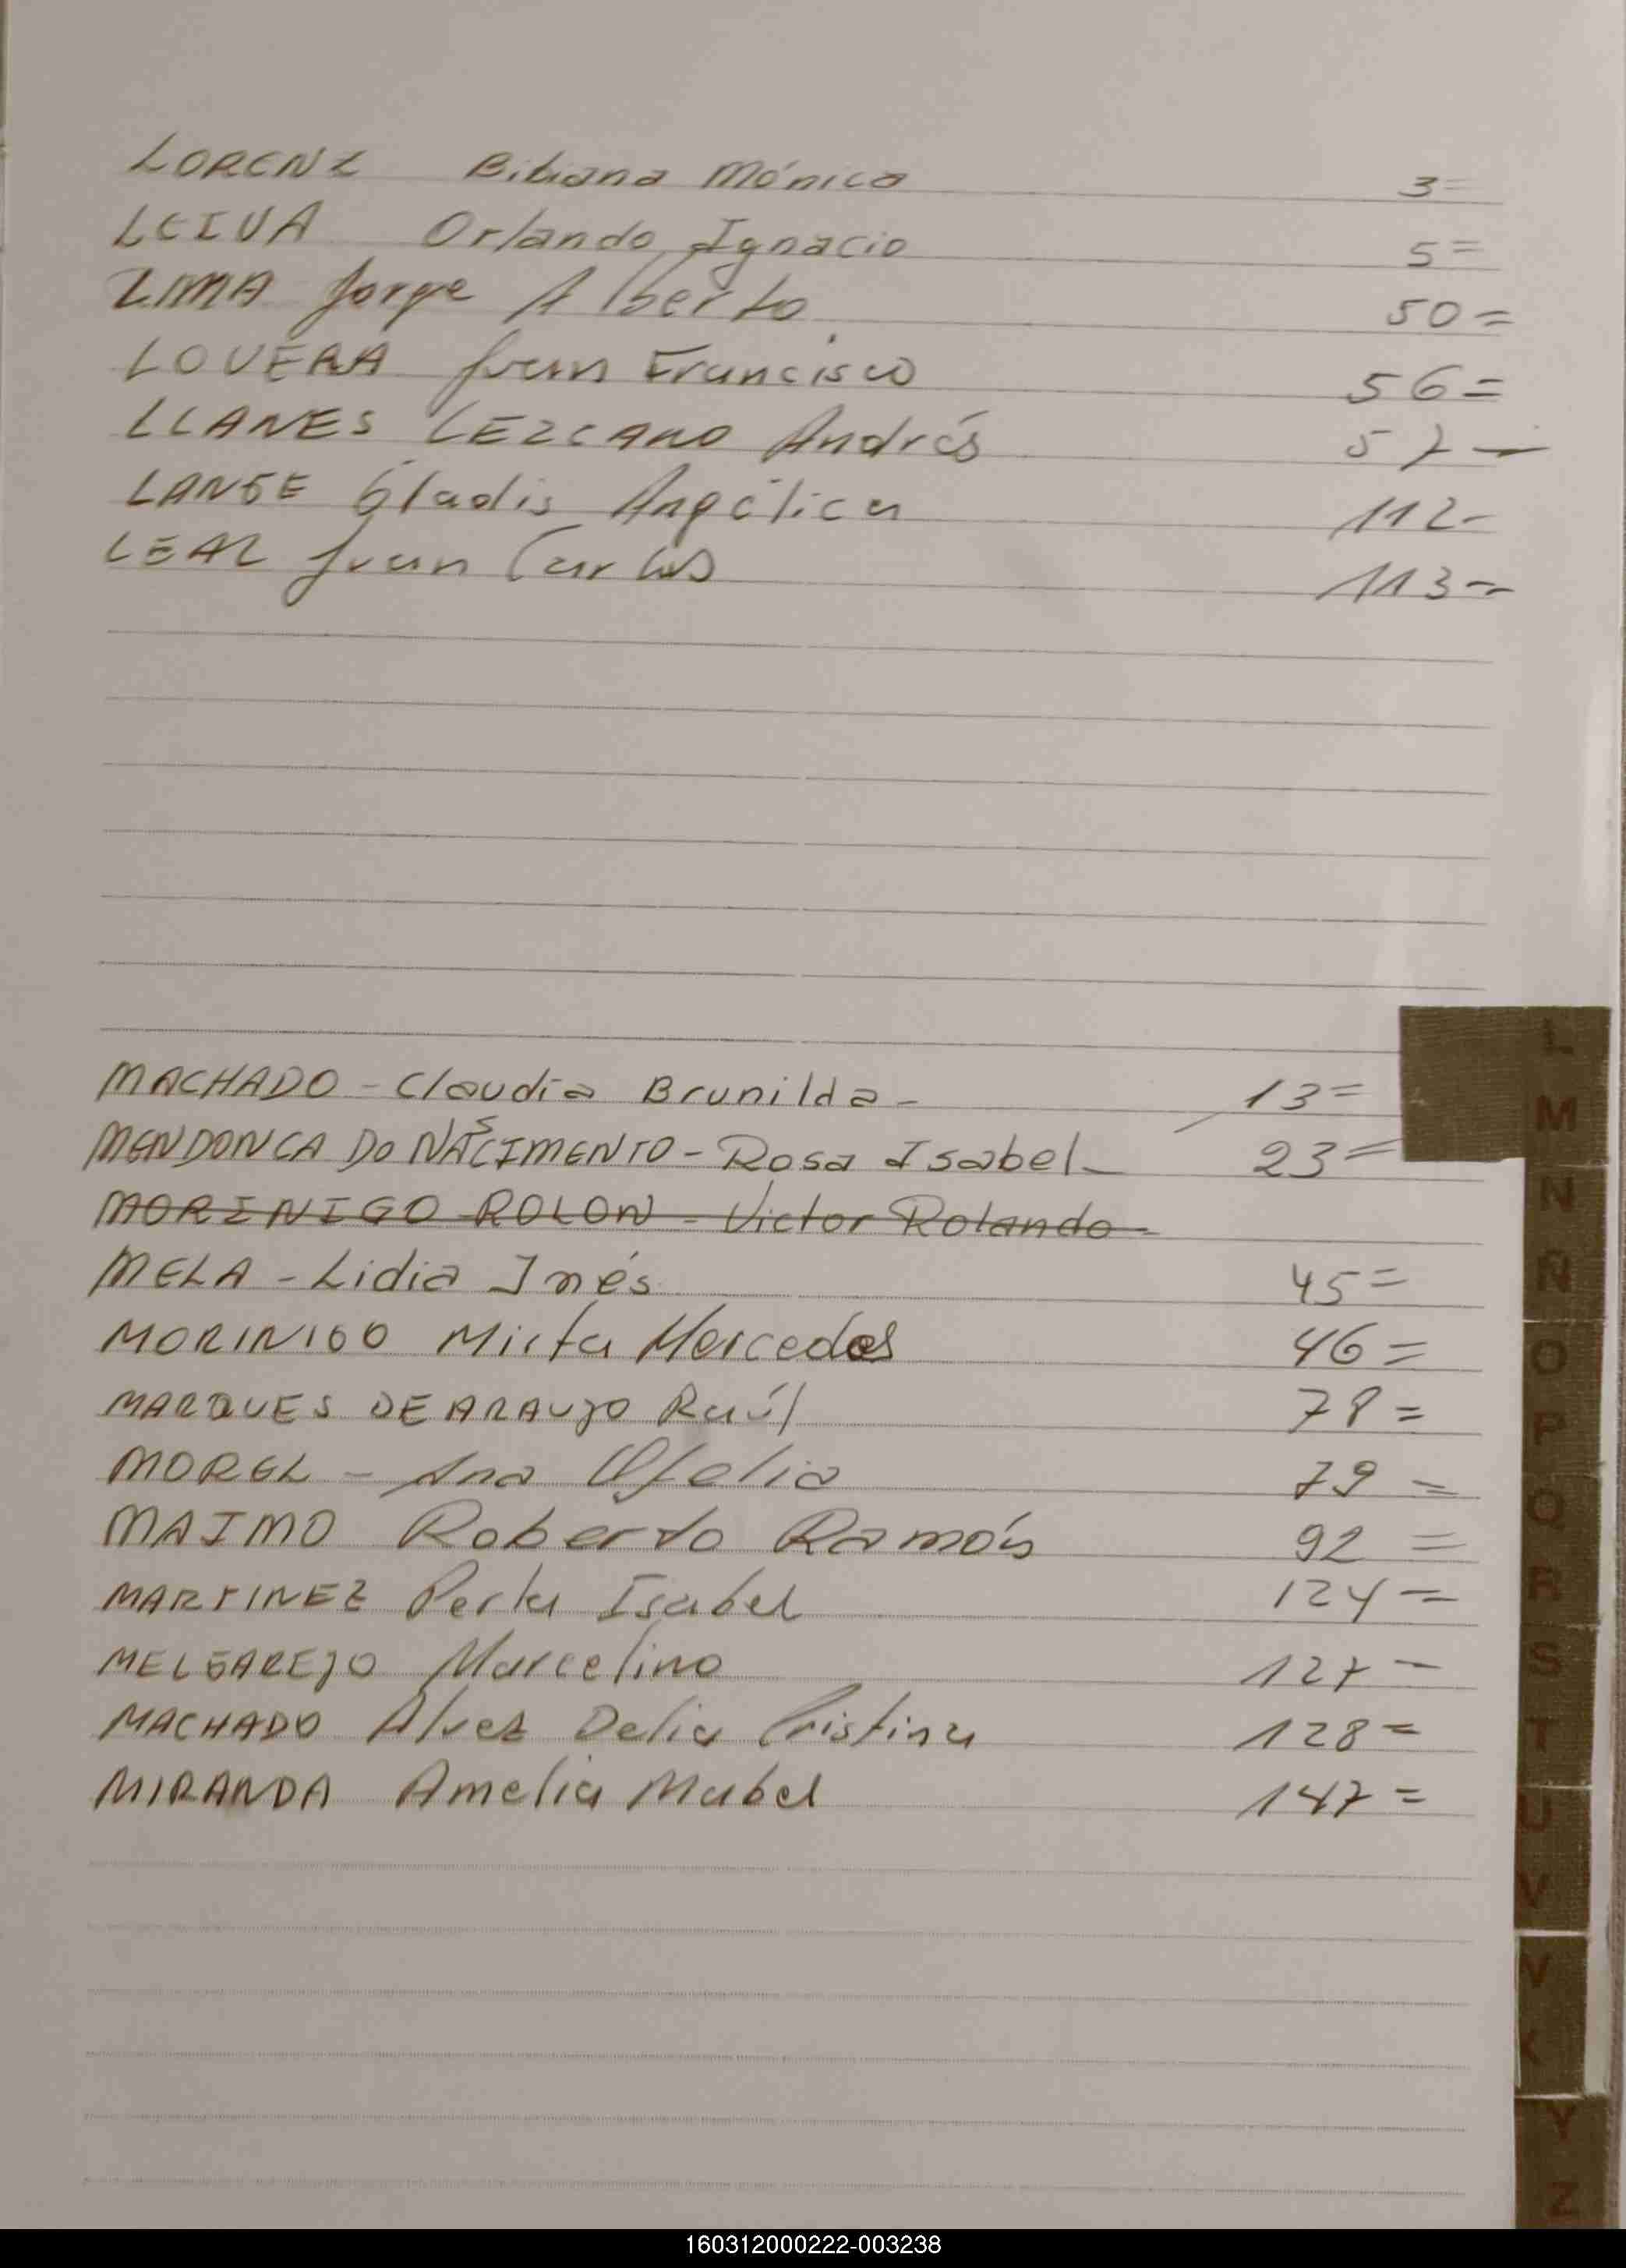 LORENZ Bibiana Mónica 3=
LEIVA Orlando Ignacio 5=
LIMA Jorge Alberto 50=
LOVERA Juan Francisco 56=
LLANES LEZCANO Andrés 57-
LANGE Gladis Angélica 112-
LEAL Juan Carlos 113=
MACHADO - Claudia Brunilda - 13=
MENDONCA DO NASCIMENTO - Rosa Isabel - 23=
MORINIGO ROLON - Victor Rolando -
MELA - Lidia Inés 45=
MORINIGO Mirta Mercedes 46=
MARQUES DE ARAUJO Raúl 78=
MOREL - Ana Ofelia 79=
MAIMO Roberto Ramón 92=
MARTINEZ Perla Isabel 124=
MELGAREJO Marcelino 127-
MACHADO Alvez Delia Cristina 128=
MIRANDA Amelia Mabel 147=
L
M
N
Ñ
O
P
Q
R
S
T
U
V
Y
Z
160312000222-003238